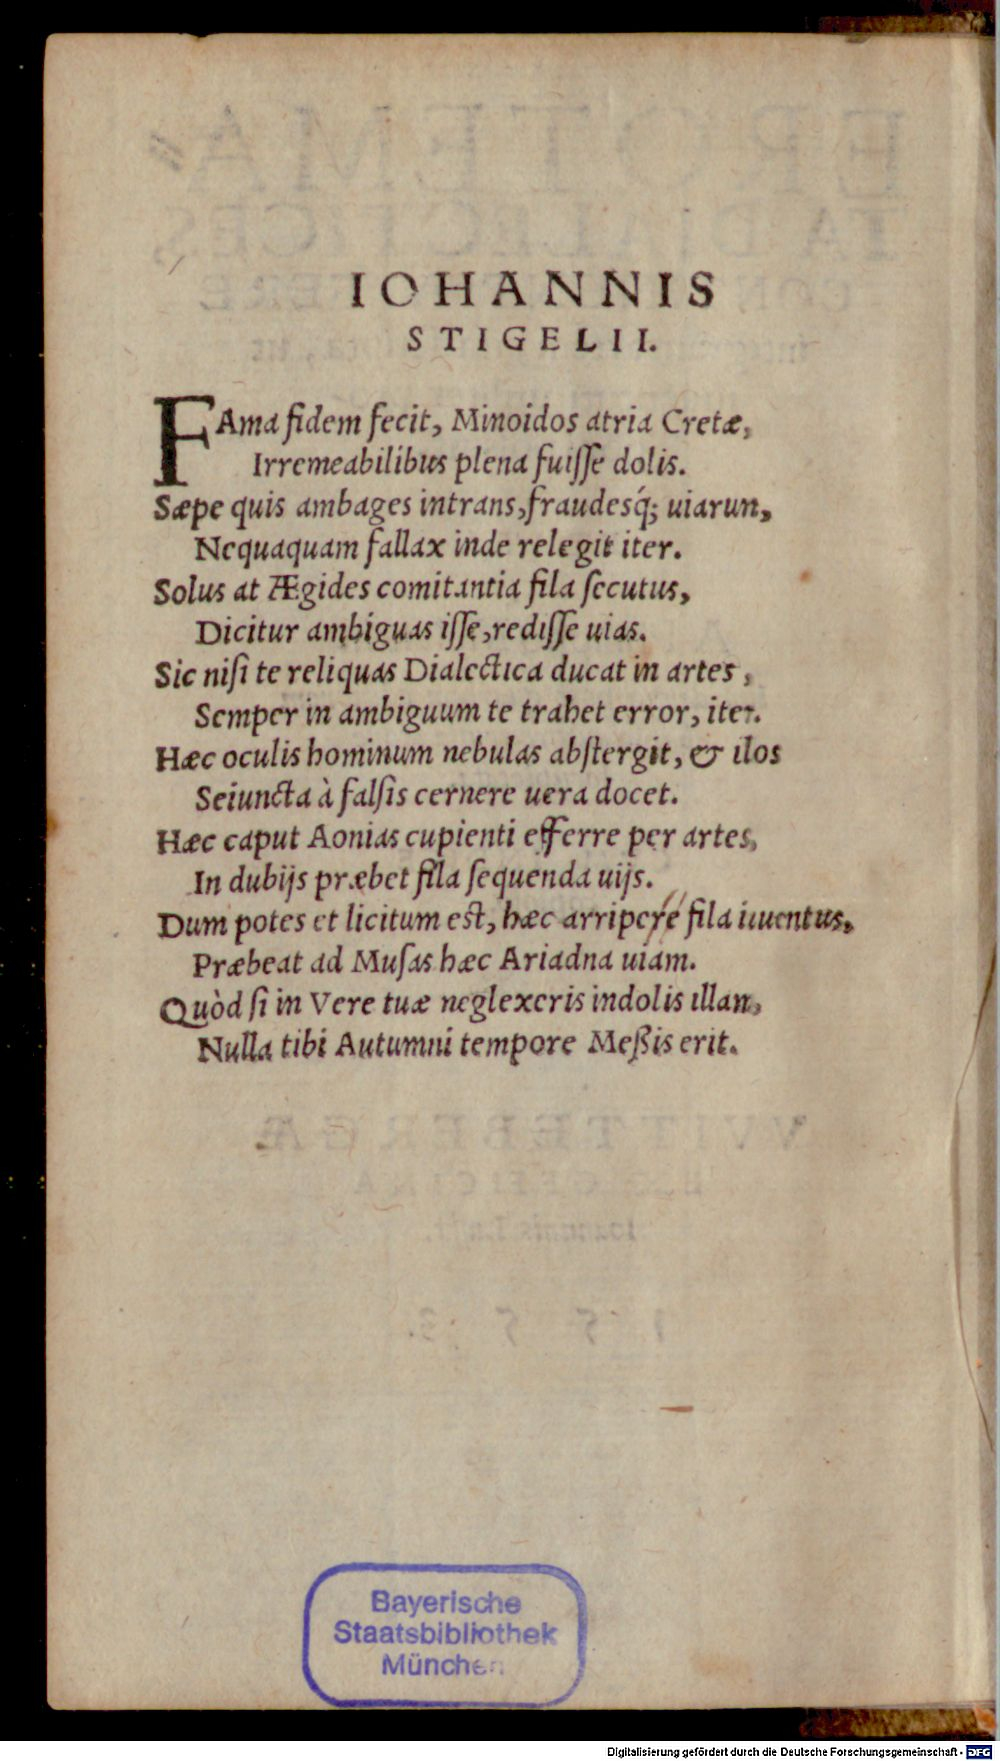 IOHANNIS
STIGELII.
FAma fidem fecit, Minoidos atria Cretæ,
Irremeabilibus plena fuiſſe dolis.
Sæpe quis ambages intrans, fraudesq́; uiarun,
Nequaquam fallax inde relegit iter.
Solus at Ægides comitantia fila ſecutus,
Dicitur ambiguas iſſe, rediſſe uias.
Sic niſi te reliquas Dialectica ducat in artes,
Semper in ambiguum te trahet error, iter.
Hæc oculis hominum nebulas abſtergit, & ilos
Seiuncta à falſis cernere uera docet.
Hæc caput Aonias cupienti efferre per artes,
In dubijs præbet fila ſequenda uijs.
Dum potes et licitum eſt, hæc arripere fila iuuentus,
Præbeat ad Muſas hæc Ariadna uiam.
Quòd ſi in Vere tuæ neglexeris indolis illan,
Nulla tibi Autumni tempore Meßis erit.
Bayerische
Staatsbibliothek
München
Digitalisierung gefördert durch die Deutsche Forschungsgemeinschaft - DFG